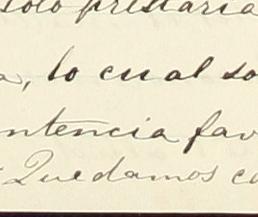 solo prestaria
a, lo cual so
ntencia fav
Quedamos co